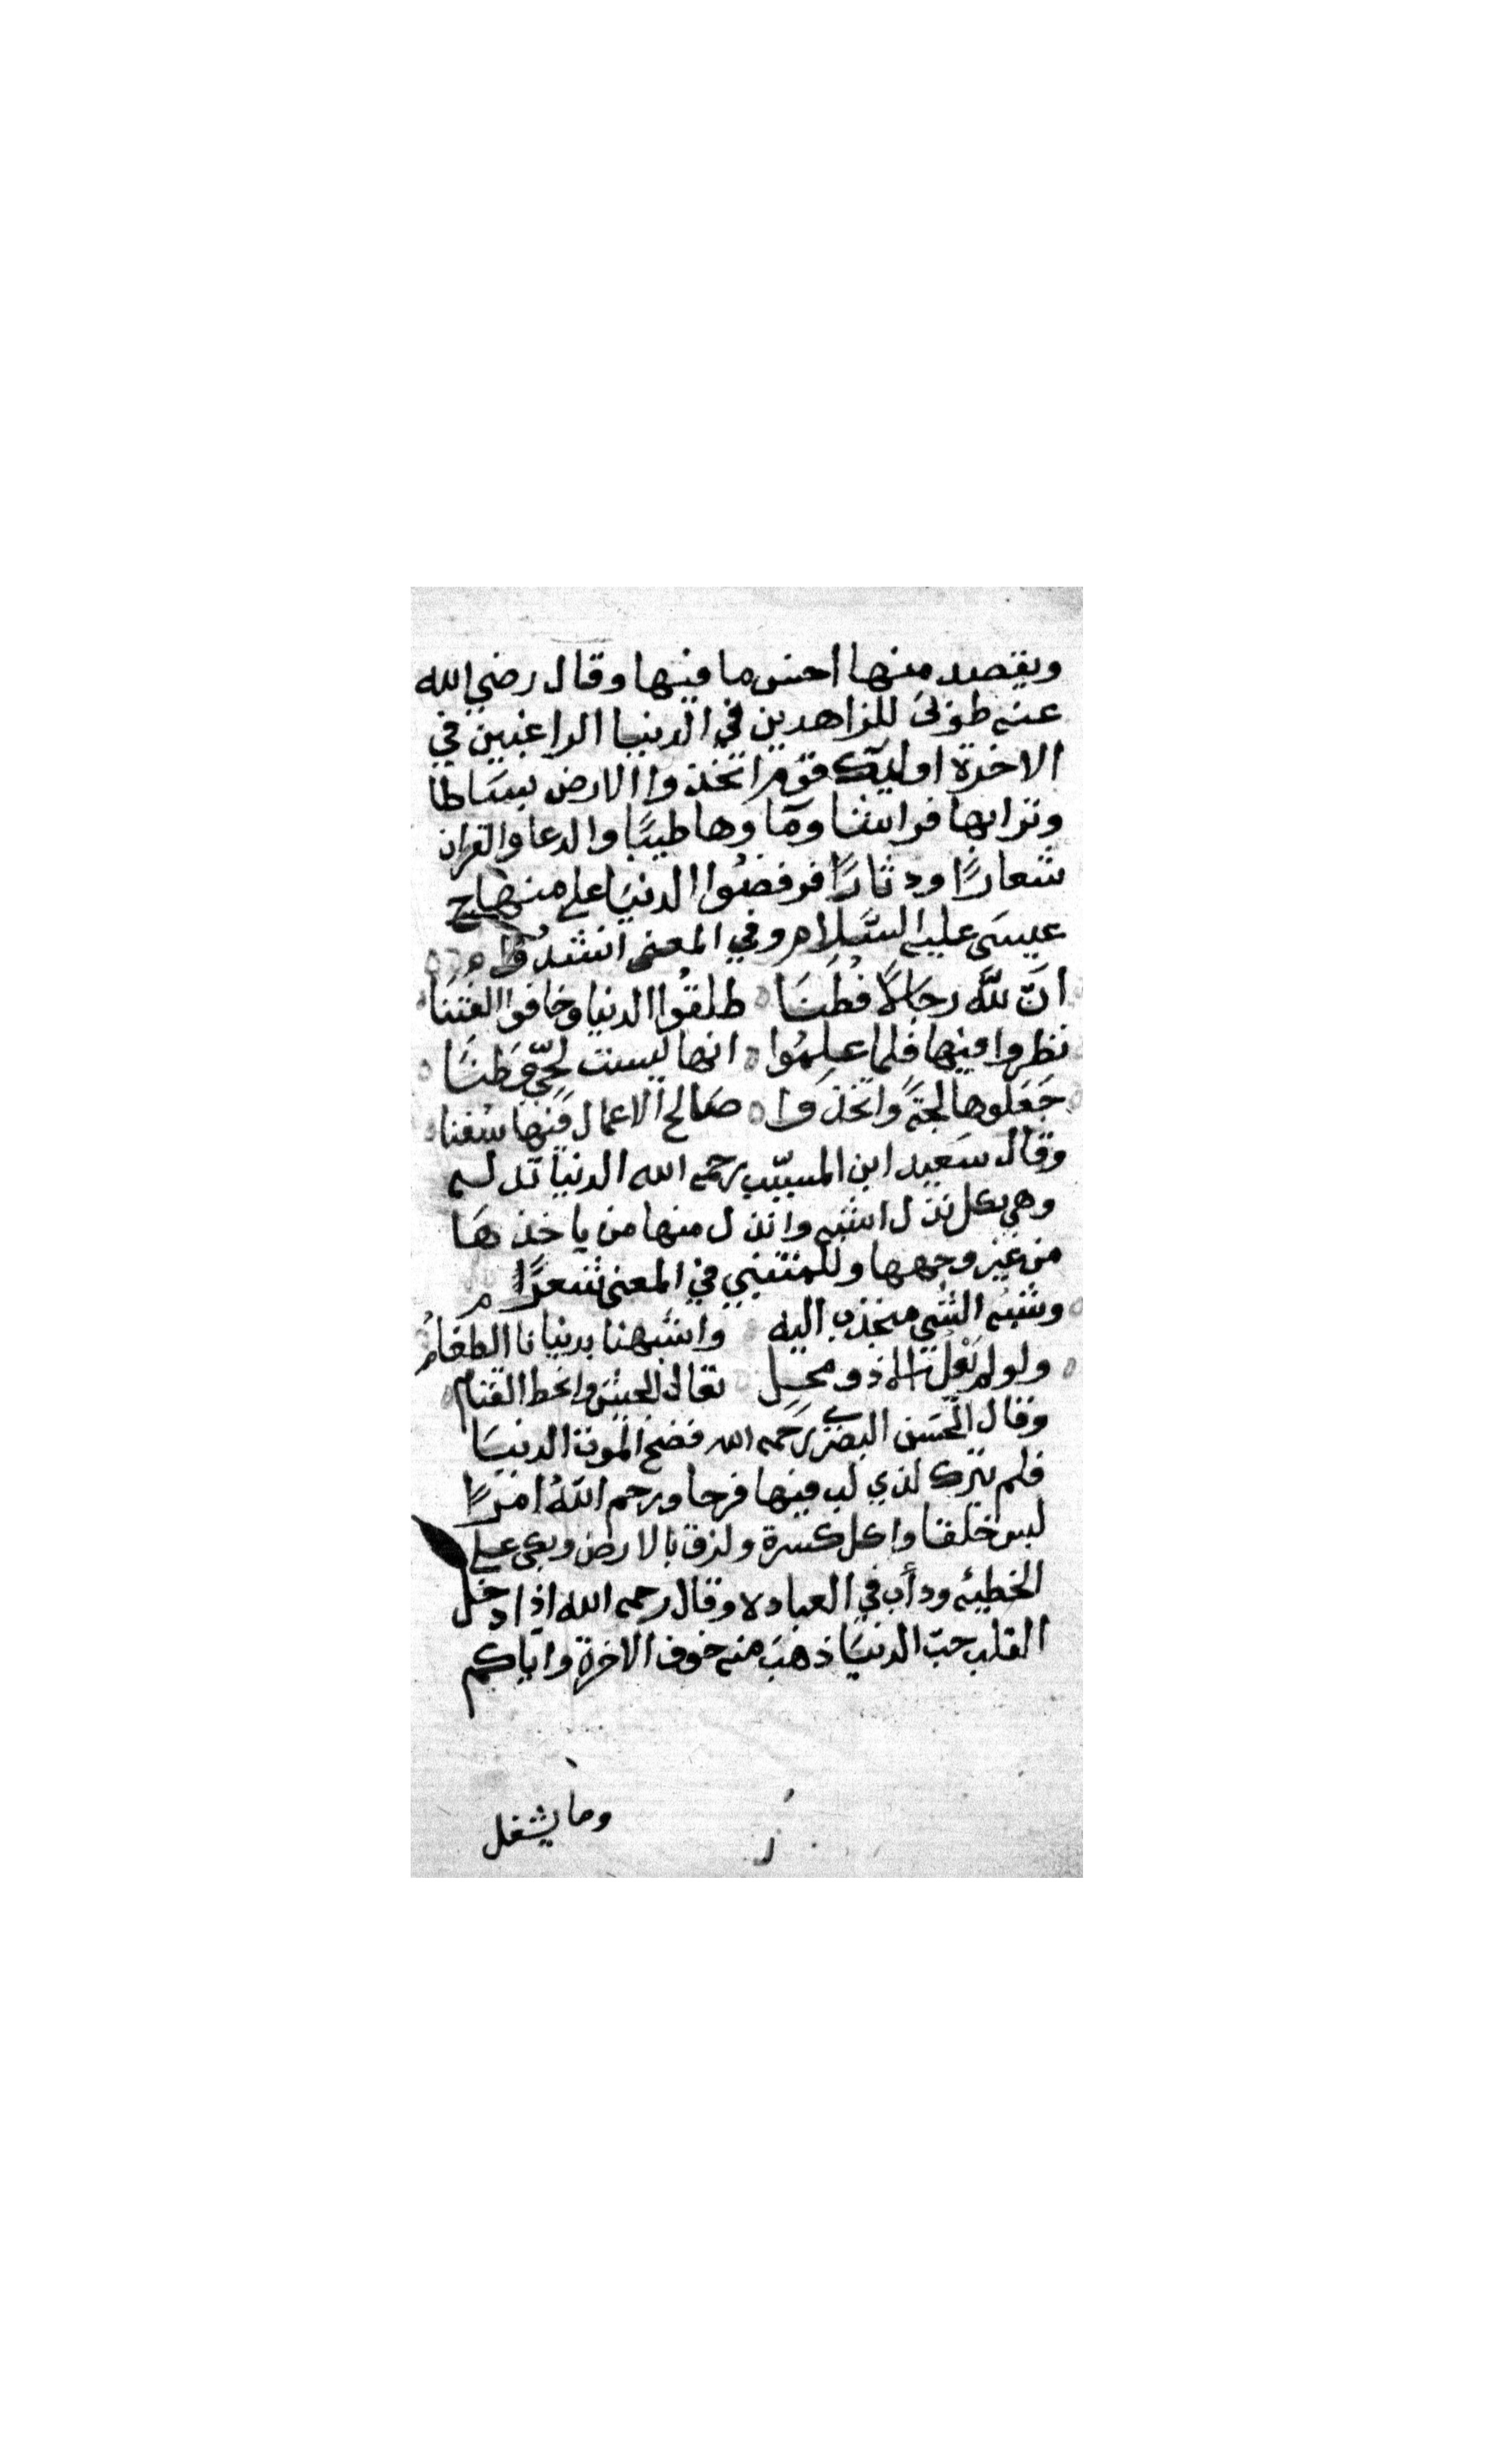 ويقصد منها احسن ما فيها وقال رضي الله
عنه طوبى للزاهدين في الدنيا الراغبين في
الاخرة اوليك قوم اتخذوا الارض بساطا
وترابها فراشا ومآوها طيبًا والدعا والقران
شعارًا ودثارًا فرفضُوا الدنيَا على منهاج
عيسَى عليه السَّلام وفي المعنى انشدُوا
انَّ للَّه رجَالاً فُطَنَا طلقُوا الدنيا وخافوا الفتَنَا
نظروا فيها فلما علِمُوا انها ليست لحيٍّ وَطنَا
جَعَلوها لجةً واتخذوا صَالح الاعمال فيها سُفنا
وقال سَعيد ابن المسيّب رحمه الله الدنيا نذلسه
وهي بكل نذل اشبه وانذل منها من ياخذهَا
من غير وجهها وللمتنبي في المعنى شعرًا
وشبْه الشي منجذب اليه واشبهنا بدنيانا الطغامُ
ولو لم يَعْلُ الا ذو محل تعالى الجيش وانحط القتام
وقال الحَسَن البصْري رَحمه الله فضح الموت الدنيَا
فلم يترك لذي لب فيها فرحا ورحم اللهُ امرًا
لبس خلقا واكل كسرة ولزق بالارض وبكى على
الخطيئه ودأب في العباده وقال رحمه الله اذا دخل
القلب حبّ الدنيَا ذهبَ منه خوف الاخرة واياكم
وما يشغل